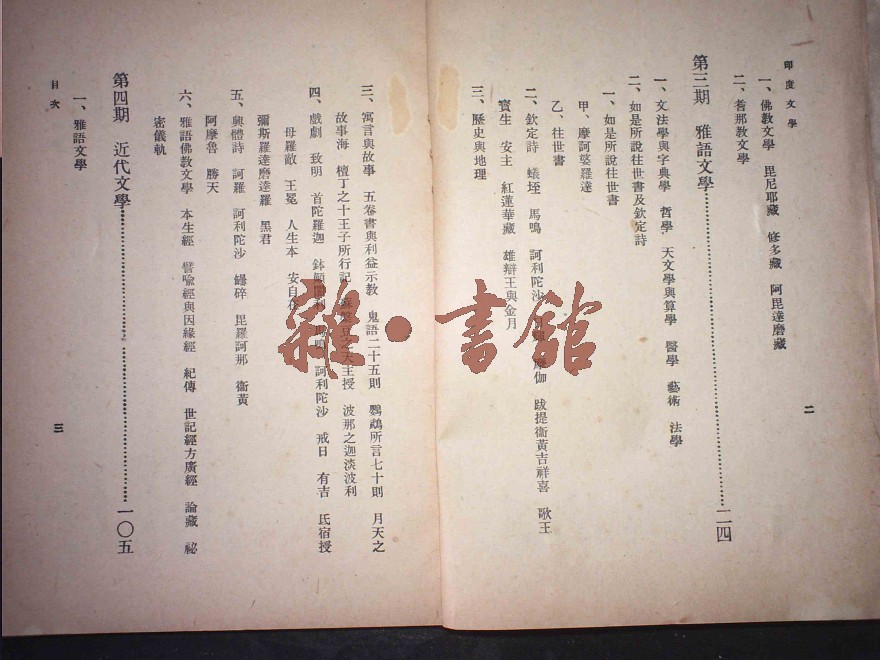 印度文學
二
一、佛教文學 毘尼耶藏 修多藏 阿毘達磨藏
二、耆那教文學
第三期 雅語文學 二四
一、文法學與字典學 哲學 天文學與算學 醫學 藝術 法學
二、如是所說往世書及欽定詩
一、如是所說往世書
甲、摩訶婆羅達
乙、往世書
二、欽定詩 蟻垤 馬鳴 訶利陀沙 摩伽 跋提衞黃吉祥喜 歌王
寶生 安主 紅蓮華藏 雄辯王與金月
三、歷史與地理
三、寓言與故事 五卷書與利益示教 鬼語二十五則 鸚鵡所言七十則 月天之
故事海 檀丁之十王子所行記 之天主授 波那之迦淡波利
四、戲劇 致明 首陀羅迦 訶利陀沙 戒日 有吉 氐宿授
母羅敵 王冕 人生本 安自在
彌斯羅達磨達羅 黑君
五、興體詩 訶羅 訶利陀沙 罎碎 毘羅訶那 衞黃
阿摩魯 勝天
六、雅語佛教文學 本生經 譬喩經與因緣經 紀傳 世記經方廣經 論藏 祕
密儀軌
第四期 近代文學 一〇五
一、雅語文學
目次
三
雜·書館